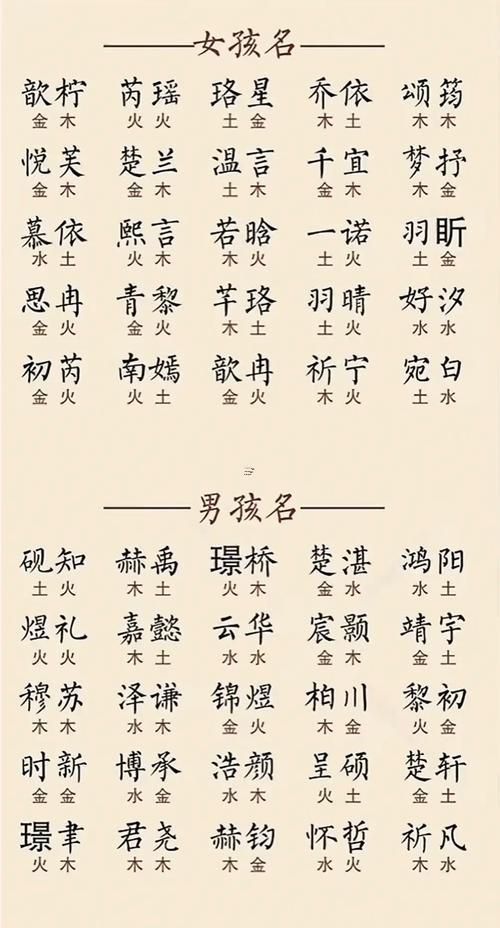 女孩名
歆柠 芮瑶 珞星 乔依 颂筠
金木 火火 土金 木土 木木
悦芙 楚兰 温言 千宜 梦抒
金木 金木 土木 金木 木金
慕依 熙言 若晗 一诺 羽昕
水土 火木 木火 土火 土金
思冉 青黎 芊珞 羽晴 好汐
金火 金火 木土 土火 水水
初芮 南嫣 歆冉 祈宁 宛白
金火 火土 金火 木火 土水
男孩名
砚知 赫禹 璟桥 楚湛 鸿阳
土火 木土 火木 金水 水土
煜礼 嘉懿 云华 宸颢 靖宇
火火 木土 水水 金木 金土
穆苏 泽谦 锦煜 柏川 黎初
木木 水木 金火 木金 火金
时新 博承 浩颜 呈硕 楚轩
金金 水金 水木 火土 金土
璟聿 君尧 赫钧 怀哲 祈凡
火木 木木 木金 水火 木水